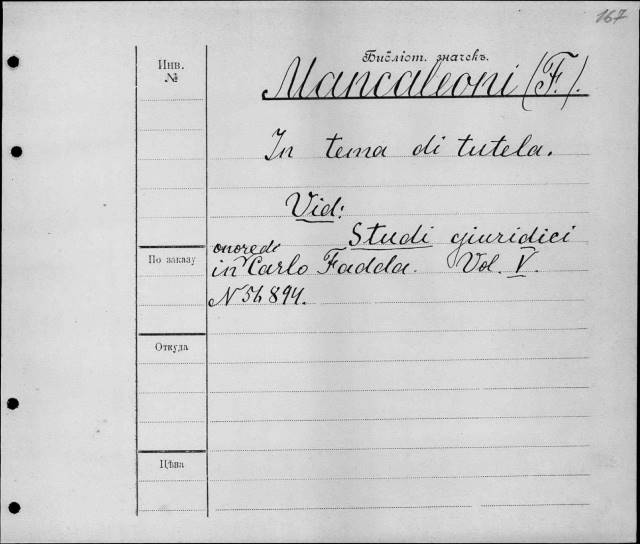 167
Библіот. значекъ.
Инв.
№
Mancaleoni (F.).
In tema di tutela.
Vid:
Studi giuridici
onore di
in Carlo Fadda. Vol. V.
По заказу
N 56894.
Откуда
Цѣна